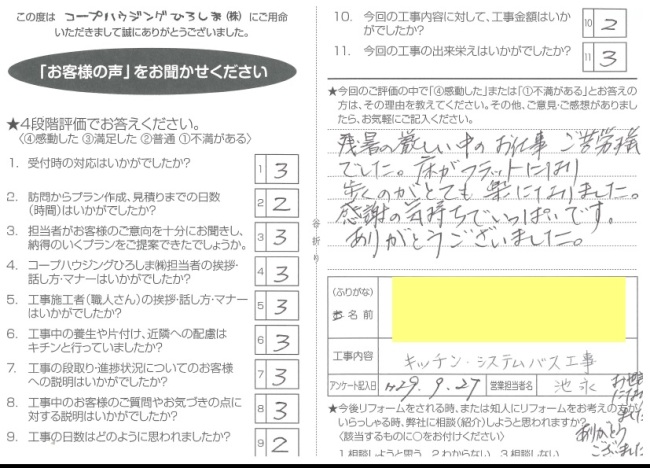 この度は コープハウジングひろしま(株) にご用命
いただきまして誠にありがとうございました。
「お客様の声」をお聞かせください
★4段階評価でお答えください。
(④感動した ③満足した ②普通 ①不満がある)
1. 受付時の対応はいかがでしたか? 1 3
2. 訪問からプラン作成、見積りまでの日数
(時間)はいかがでしたか? 2 2
3. 担当者がお客様のご意向を十分にお聞きし、
納得のいくプランをご提案できたでしょうか。 3 3
4. コープハウジングひろしま㈱担当者の挨拶・
話し方・マナーはいかがでしたか? 4 3
5. 工事施工者(職人さん)の挨拶・話し方・マナー
はいかがでしたか? 5 3
6. 工事中の養生や片付け、近隣への配慮は
キチンと行っていましたか? 6 3
7. 工事の段取り・進捗状況についてのお客様
への説明はいかがでしたか? 7 3
8. 工事中のお客様のご質問やお気づきの点に
対する説明はいかがでしたか? 8 3
9. 工事の日数はどのように思われましたか? 9 2
谷折り
10. 今回の工事内容に対して、工事金額はいか
がでしたか? 10 2
11. 今回の工事の出来栄えはいかがでしたか? 11 3
★今回のご評価の中で「④感動した」または「①不満がある」とお答えの
方は、その理由を教えてください。その他、ご意見・ご感想がありまし
たら、お気軽にご記入ください。
残暑の厳しい中のお仕事 ご苦労様
でした。床がフラットになり
歩くのがとても 楽になりました。
感謝の気持ちでいっぱいです。
ありがとうございました。
(ふりがな)
お名前
工事内容 キッチン・システムバス工事
アンケート記入日 H29.9.27 営業担当者名 池永
お世話
になり
ました
ありがとう
ございました
★今後リフォームをされる時、または知人にリフォームをお考えの方が
いらっしゃる時、弊社に相談(紹介)しようと思われますか?
<該当するものに○をお付けください>
1.相談しようと思う 2.わからない 3.相談しない